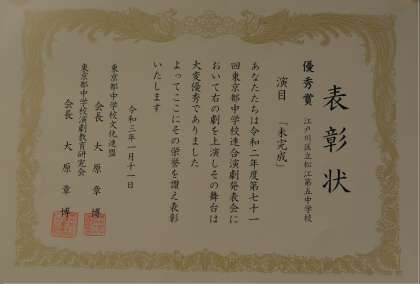 表彰状
優秀賞 江戸川区立松江第五中学校
演目 「未完成」
あなたたちは令和二年度第七十一
回東京都中学校連合演劇発表会に
おいて右の劇を上演しその舞台は
大変優秀でありました
よってここにその栄誉を讃え表彰
いたします
令和三年一月十一日
東京都中学校文化連盟
会長 大原章博
東京都中学校演劇教育研究会
会長 大原章博